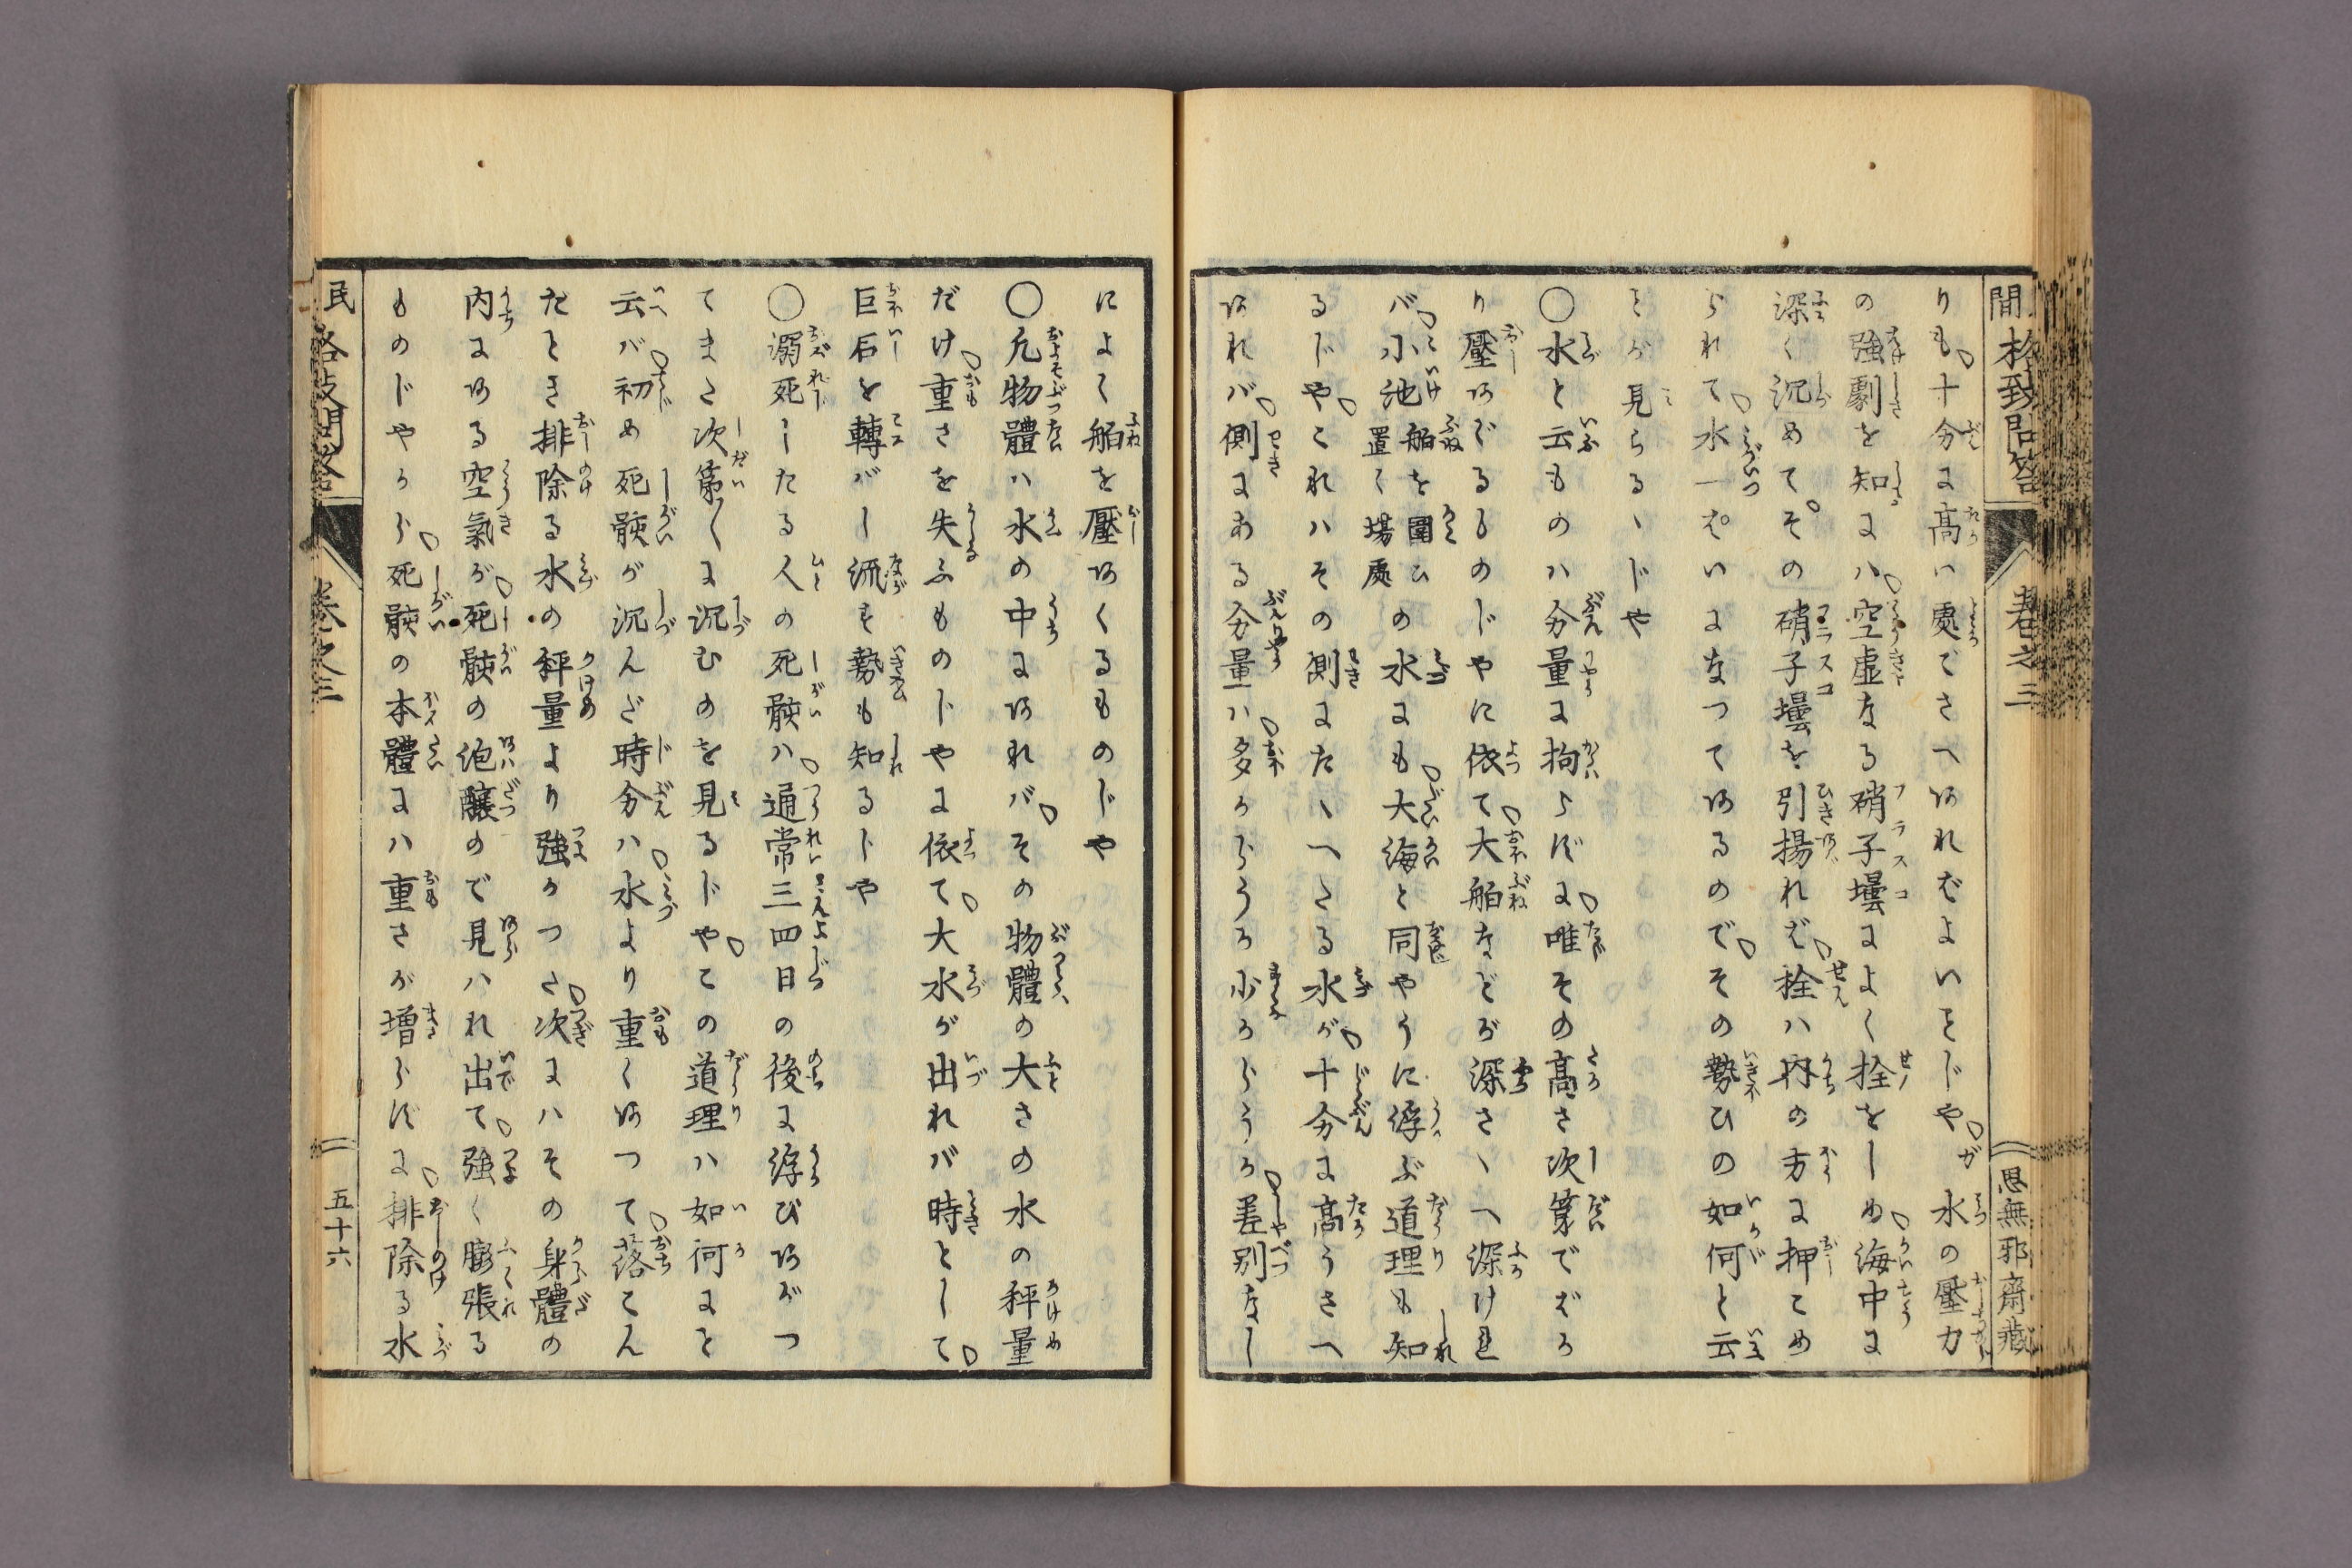 間 格致問答 巻之三 思無邪齋藏
りも十分に高い處でさへあればよいことじやが水の壓力
の強劇を知にハ空虚なる硝子壜によく拴をしめ海中に
深く沉めてその硝子壜を引揚れば拴ハ内の方に押こめ
られて水一ぱいになつてあるのでその勢ひの如何と云
ことが見らるゝじや
○水と云ものハ分量に拘らずに唯その高さ次第でばか
り壓あがるものじやに依て大舶などが深さゝへ深けれ
バ小池舶を圍ひ置く場處の水にも大海と同やうに浮ぶ道理も知
るじやこれハその側にたゝへたる水が十分に高うさへ
あれバ側にある分量ハ多からうが少からうが差別なし
によく舶を壓あくるものじや
○凢物體ハ水の中にあれバその物體の大さの水の秤量
だけ重さを失ふものじやに依て大水が出れバ時として
巨石を轉ばし流す勢も知るじや
○溺死したる人の死骸ハ通常三四日の後に浮びあがつ
てまた次第〱に沉むのを見るじやこの道理ハ如何にと
云バ初め死骸が沉んだ時分ハ水より重くあつて落こん
だとき排除る水の秤量より強かつた次にハその身體の
内にある空氣が死骸の泡釀ので見ハれ出て強く膨張る
ものじやから死骸の本體にハ重さが増らずに排除る水
民 格致問答 巻之三 五十六